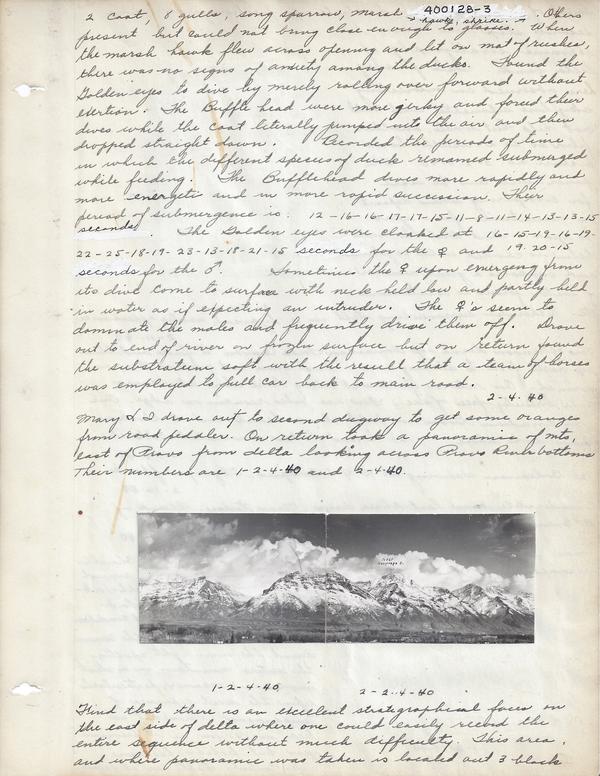 400128-3
2 Coot, 8 gulls, song sparrow, marsh hawk, shrike. Others
present but could not bring close enough to glasses. When
the marsh hawk flew across opening and lit on mat of rushes,
there was no signs of anxiety among the ducks. Found the
Golden eyes to dive by merely rolling over forward without
exertion. The Buffle head were more jerky and forced their
dives while the Coot literally jumped into the air and then
dropped straight down. Recorded the periods of time
in which the different species of duck remained submerged
while feeding. The Bufflehead dives more rapidly and
more energetic and in more rapid succession. Their
period of submergence is 12-16-16-17-17-15-11-8-11-14-13-13-15
seconds. The Golden eyes were clocked at 16-15-19-16-19-
22-25-18-19-23-13-18-21-15 seconds for the ♀ and 19-20-15
seconds for the ♂. Sometimes the ♀ upon emerging from
its dive come to surface with neck held low and partly held
in water as if expecting an intruder. The ♀'s seem to
dominate the males and frequently drive them off. Drove
out to end of river on frozen surface but on return found
the substratum soft with the result that a team of horses
was employed to pull car back to main road.
2-4-40
Mary & I drove out to second dugway to get some oranges
from road pedaler. On return took a panoramic of mts,
east of Provo from delta looking across Provo River bottoms
Their numbers are 1-2-4-40 and 2-4-40.
1-2-4-40 2-2-4-40
Find that there is an excellent stratigraphical faces on
the east side of delta where one could easily record the
entire sequence without much difficulty. This area,
and where panoramic was taken is located out 3 block